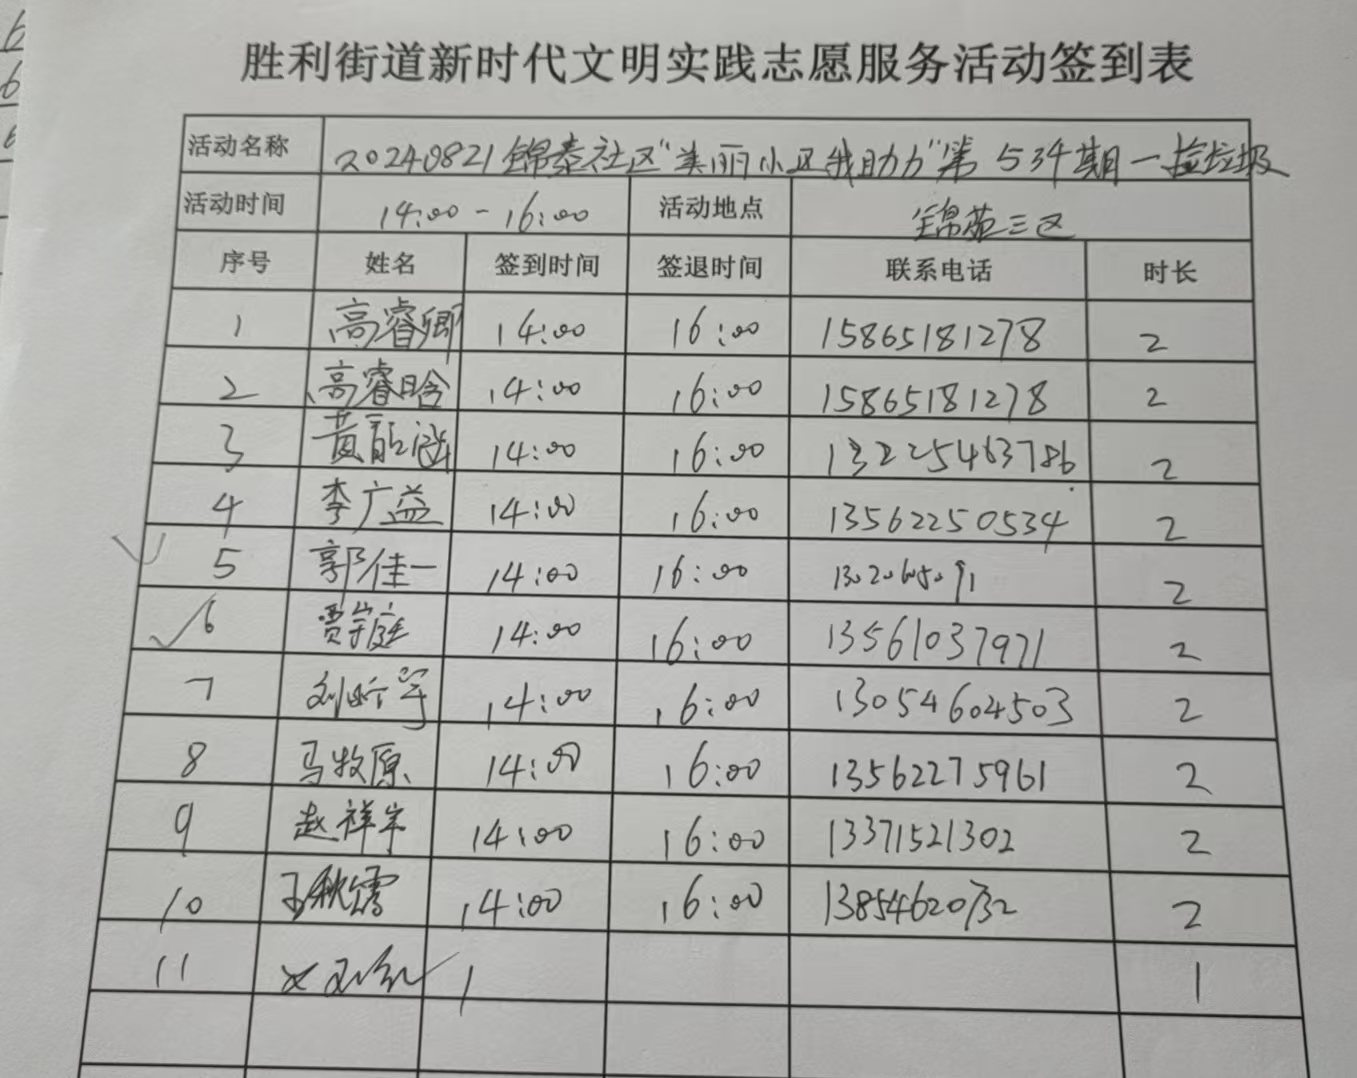 胜利街道新时代文明实践志愿服务活动签到表
活动名称 20240821锦泰社区"美丽小区我助力"第534期一捡垃圾
活动时间 14:00-16:00 活动地点 锦苑三区
序号 姓名 签到时间 签退时间 联系电话 时长
1 高睿卿 14:00 16:00 15865181278 2
2 高睿晗 14:00 16:00 15865181278 2
3 黄 涵 14:00 16:00 132225463786 2
4 李广益 14:00 16:00 13562250534 2
5 郭佳一 14:00 16:00 13020605091 2
6 贾 庭 14:00 16:00 13561037971 2
7 刘昕 14:00 16:00 13054604503 2
8 马牧原 14:00 16:00 13562275961 2
9 赵祥宇 14:00 16:00 13371521302 2
10 王秋霞 14:00 16:00 13854620732 2
11 1 1